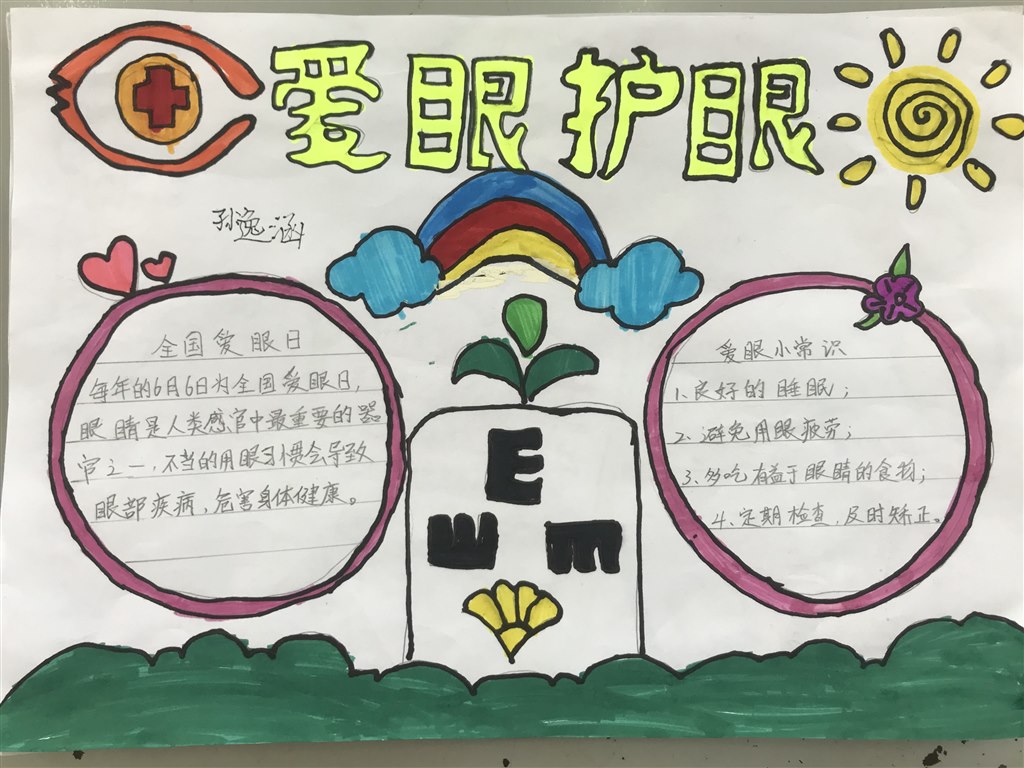 爱眼护眼
孙逸涵
全国爱眼日
每年的6月6日为全国爱眼日,
眼睛是人类感官中最重要的器
官之一,不当的用眼习惯会导致
眼部疾病,危害身体健康。
爱眼小常识
1、良好的睡眠;
2、避免用眼疲劳;
3、多吃有益于眼睛的食物;
4、定期检查,及时矫正。
E
E
E